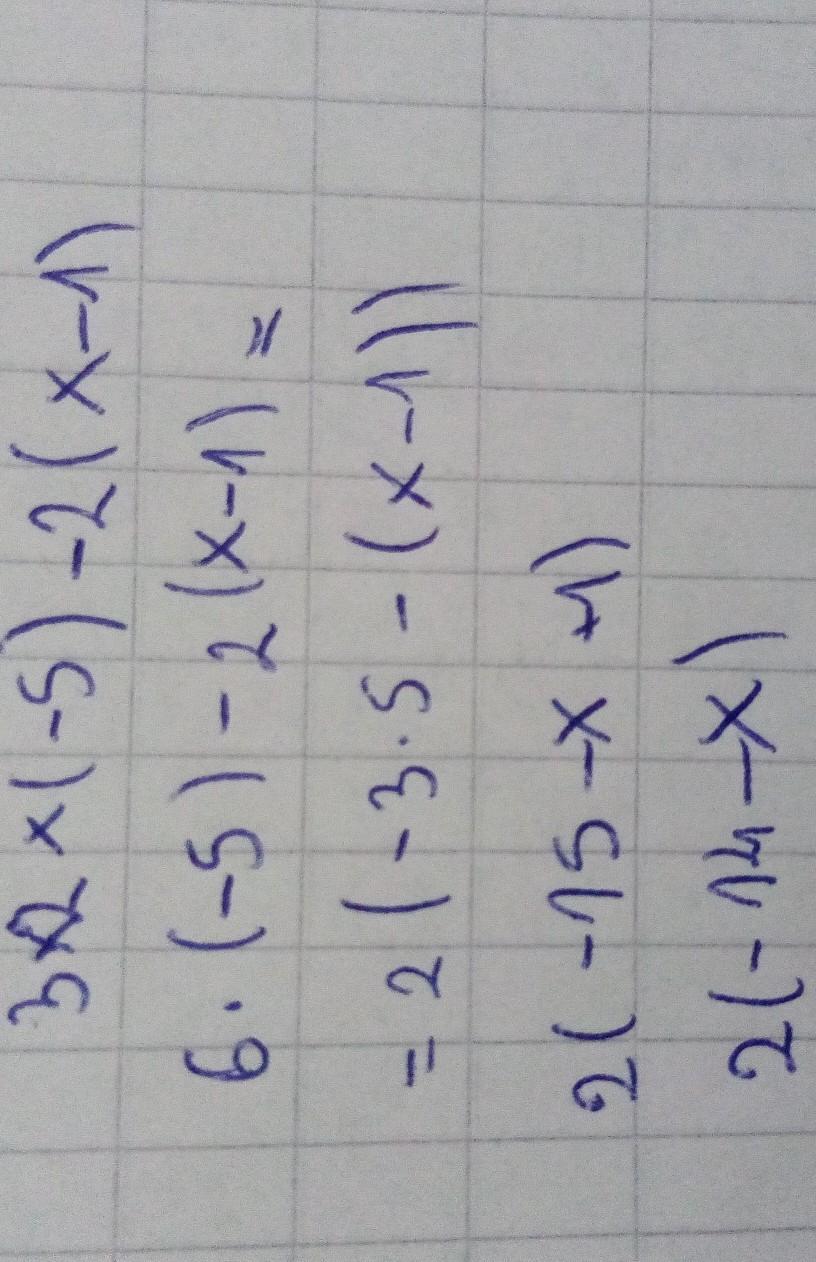 3×2×(-5)-2(x-1)
6·(-5)-2(x-1)=
=2(-3·5-(x-1))
2(-15-x+1)
2(-14-x)